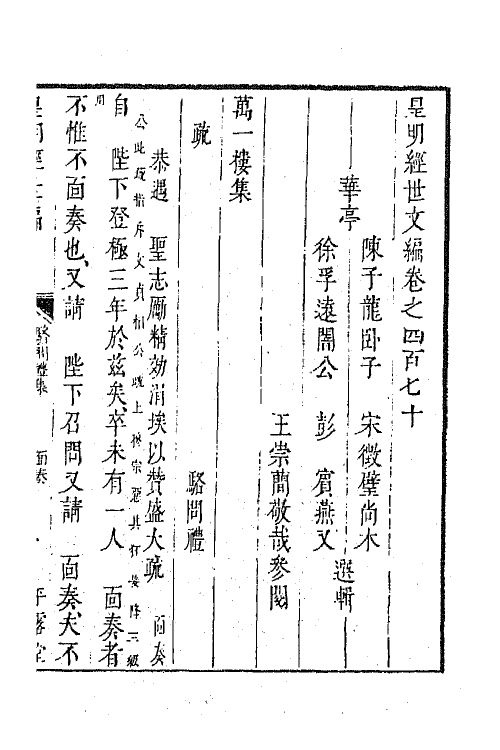 皇明經世文編卷之四百七十
華亭
陳子龍臥子 宋徵璧尚木
徐孚遠闇公 彭賓燕又
選輯
王崇蕳敬哉參閱
萬一樓集
駱問禮
疏
恭遇 聖志勵精効涓埃以贊盛大疏 面奏
公此疏指斥文貞相公疏上 穆宗惡其狂妄降三級用
自 陛下登極三年於茲矣卒未有一人 面奏者
不惟不面奏也又請 陛下召問又請 面奏夫不
皇明經世編 駱問禮集 面奏 平露堂